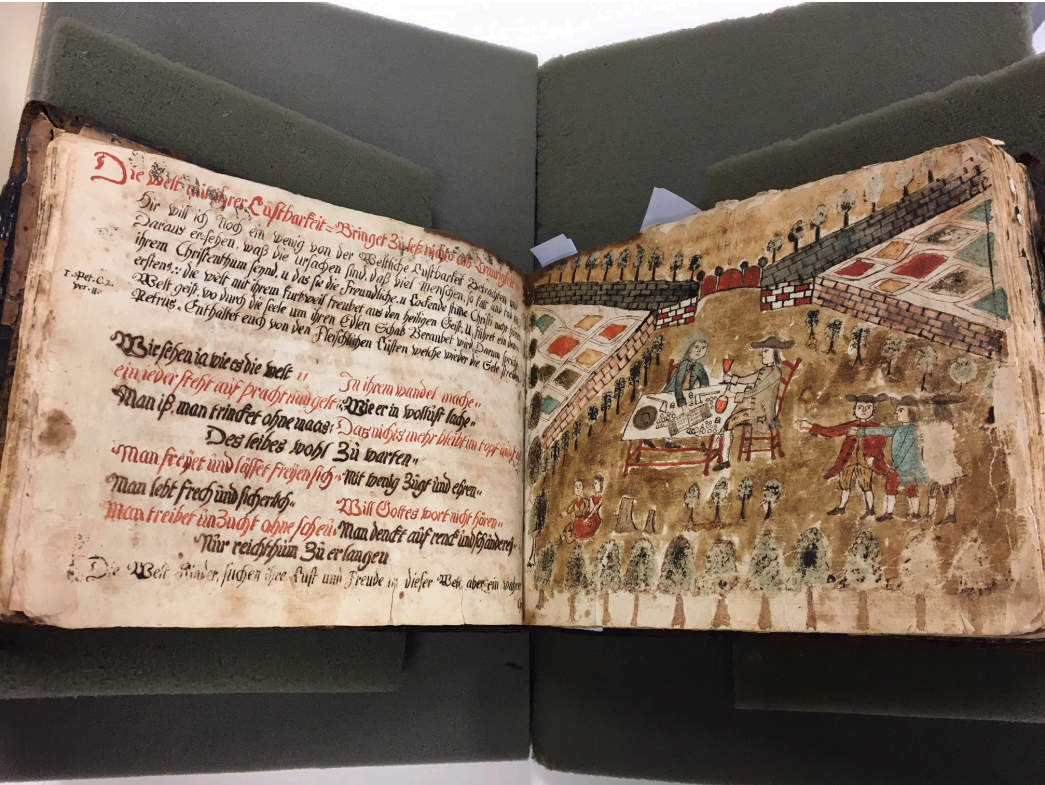 Die Welt mit ihrer Lustbarkeit = Bringet Zu letz nichts als Traurigkeit
Hir will ich Noch ein wenig von der Weltliche Lustbarkeit Betrachten und
Daraus ersehen, waß die ursachen sind, daß viel menschen, so kalt und
ihrem Christenthum seynd, u daß sie die Freundliche, u Lockende stime Christi nicht
ersten,: die welt mit ihrem kurtzweil treubet aus den heiligen Geist, u. führet ein
1. Pet: C. 2.
ver. 11.
Welt geist, wo durch die seele um ihren Edlen Schatz Beraubet wird, Darum spricht
Petrus, Enthaltet euch von den Fleischlichen Lüsten welche wieder die Seele streiten
Wir sehen ia wie es die welt,, In ihrem wandel mache,,
ein ieder steht auf pracht und gelt,, Wie er in wollust lache,,
Man iß, man trincket ohne maas, Das nichts mehr bleibt im topf und
Des leibes wohl Zu warten,,
Man freyet und lässet freyen sich,, Mit wenig Zugt und ehren,,
Man lebt frech und sicherlich,, Will Gottes wort nicht hören,,
Man treibet unzucht ohne scheu, Man denckt auf renck und schinderei,,
Nur reichthum Zu erlangen
Die Welt Kinder, suchen ihre Lust und Freude in dieser Welt, aber ein wahrer